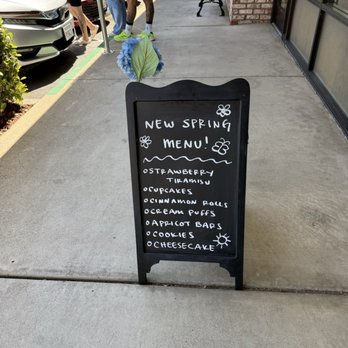 NEW SPRING
MENU!
STRAWBERRY
TIRAMISU
CUPCAKES
CINNAMON ROLLS
CREAM PUFFS
APRICOT BARS
COOKIES
CHEESECAKE